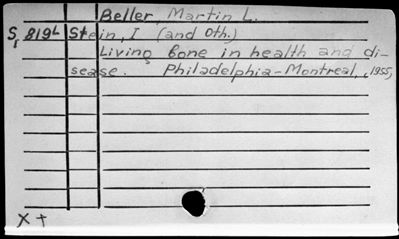 Beller, Martin L.
S, 819L Stein, I (and oth.)
Living bone in health and di-
sease. Philadelphia-Montreal, 1955,
X +